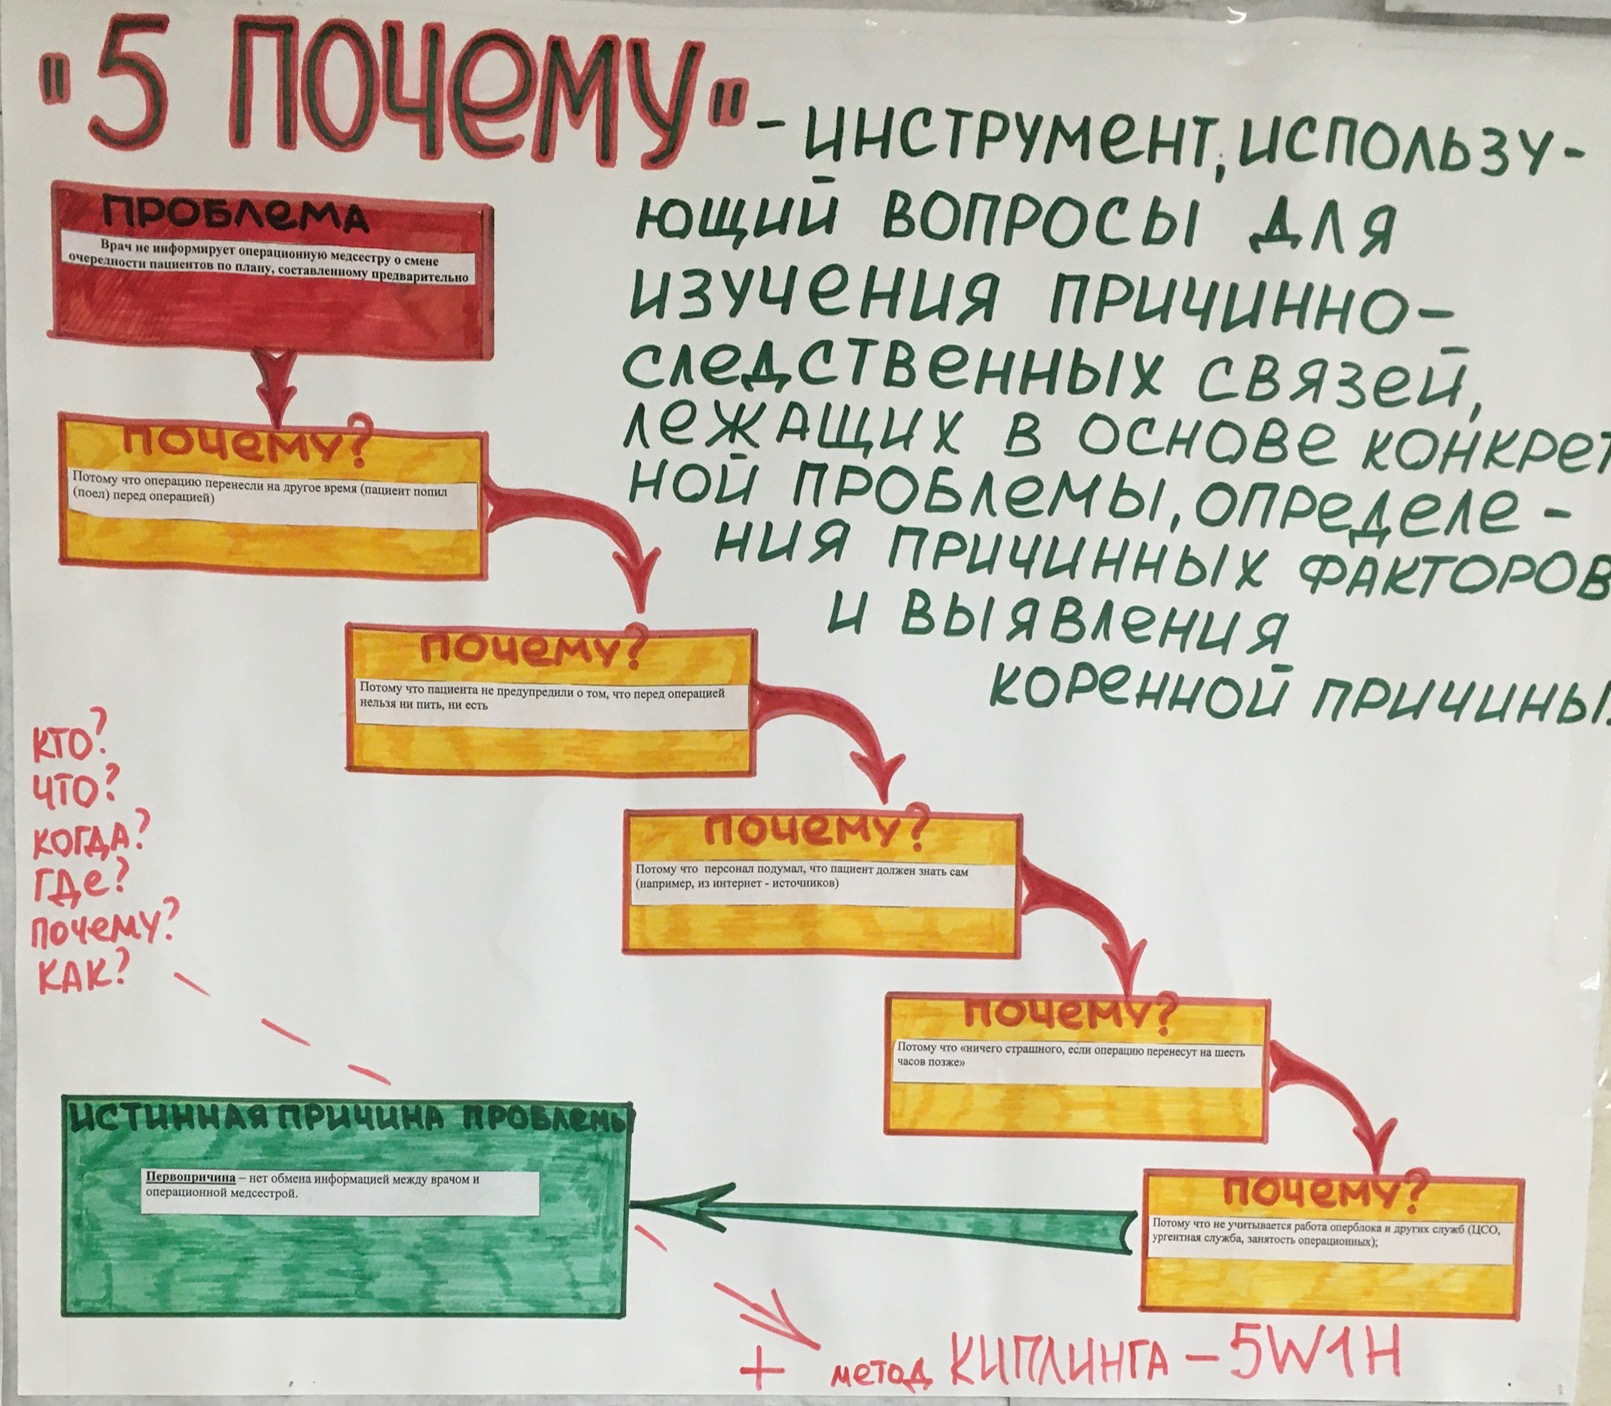 "5 ПОЧЕМУ" - ИНСТРУМЕНТ, ИСПОЛЬЗУ-
ЮЩИЙ ВОПРОСЫ ДЛЯ
ИЗУЧЕНИЯ ПРИЧИННО-
СЛЕДСТВЕННЫХ СВЯЗЕЙ,
ЛЕЖАЩИХ В ОСНОВЕ КОНКРЕТ
НОЙ ПРОБЛЕМЫ, ОПРЕДЕЛЕ-
НИЯ ПРИЧИННЫХ ФАКТОРОВ
И ВЫЯВЛЕНИЯ
КОРЕННОЙ ПРИЧИНЫ.
ПРОБЛЕМА
Врач не информирует операционную медсестру о смене
очередности пациентов по плану, составленному предварительно
ПОЧЕМУ?
Потому что операцию перенесли на другое время (пациент попил
(поел) перед операцией)
ПОЧЕМУ?
Потому что пациента не предупредили о том, что перед операцией
нельзя ни пить, ни есть
ПОЧЕМУ?
Потому что персонал подумал, что пациент должен знать сам
(например, из интернет - источников)
ПОЧЕМУ?
Потому что «ничего страшного, если операцию перенесут на шесть
часов позже»
ПОЧЕМУ?
Потому что не учитывается работа оперблока и других служб (ЦСО,
ургентная служба, занятость операционных);
КТО?
ЧТО?
КОГДА?
ГДЕ?
ПОЧЕМУ?
КАК?
ИСТИННАЯ ПРИЧИНА ПРОБЛЕМЫ
Первопричина – нет обмена информацией между врачом и
операционной медсестрой.
+ метод КИПЛИНГА – 5W1H